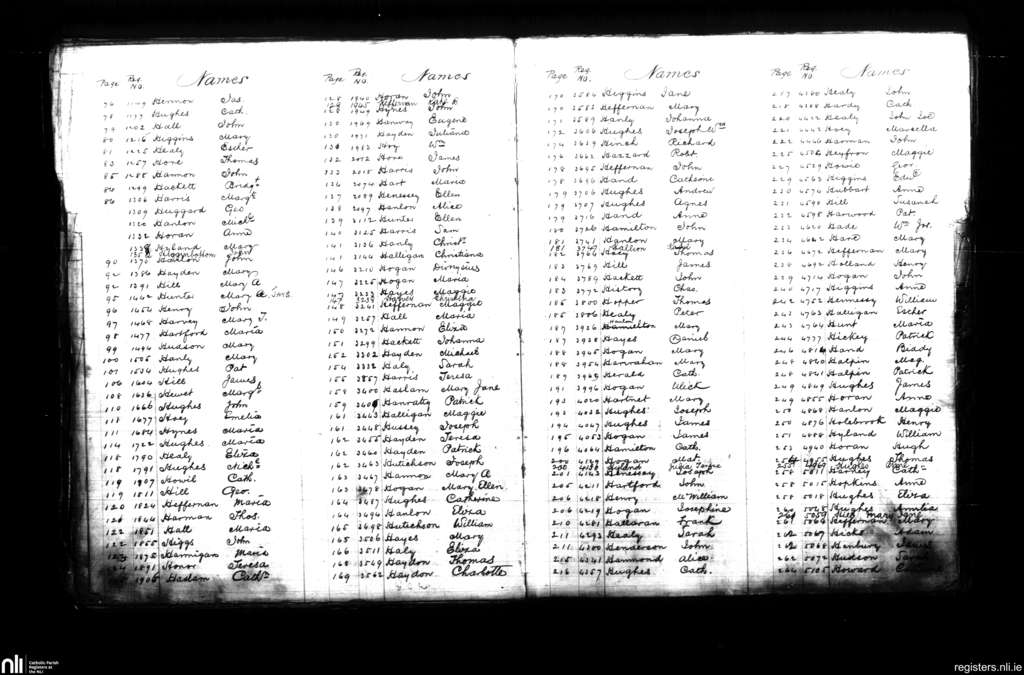 Page Reg. No. Names
76 1149 Hennon Jas.
78 1177 Hughes Cath.
79 1202 Hall John
80 1216 Higgins Mary
81 1225 Healy Esther
83 1257 Hore Thomas
85 1285 Hannon John
86 1299 Hackett Bridgt
86 1306 Harris Margt
1309 Huggard Geo
1320 Hanlon Michl
1332 Horan Anne
1338 Hyland Mary
1358 Higginbottom John
90 1370 Hanlon John
92 1386 Hayden Mary
92 1391 Hill Mary A
95 1442 Hunter Mary A
96 1454 Henry John
97 1468 Harvey Mary T.
98 1477 Hartford Maria
99 1494 Hudson Mary
100 1505 Hanly Mary
107 1534 Hughes Pat
106 1604 Hill James
108 1636 Hewet Margt
110 1666 Hughes John
111 1677 Hoey Emelia
111 1684 Hynes Maria
114 1722 Hughes Maria
118 1790 Healy Eliza
118 1791 Hughes Michl
119 1807 Hovil Cath.
119 1811 Hill Geo.
120 1824 Heffernan Maria
121 1844 Harman Thos.
122 1851 Hall Maria
122 1855 Higgs John
123 1875 Hannigan Maria
1891 Honor Teresa
1906 Haslam Cath
Page Reg. No. Names
128 1940 Horan John
128 1945 Heffernan
128 1949 Hynes John
130 1969 Hanvey Eugene
130 1971 Hayden Juliana
131 1983 Hoy Wm
132 2002 Hore James
133 2018 Harris John
136 2074 Hart Maria
137 2089 Henessey Ellen
138 2097 Hanlon Alice
139 2112 Hunter Ellen
140 3125 Harris Sam
141 3136 Hanly Christr
141 3144 Halligan Christiana
146 3210 Hogan Dionysius
147 3225 Hogan Maria
147 3233 Hayes Maggie
147 3239 Harvey Christina
148 3241 Heffernan Maggie
149 3257 Hall Maria
150 3272 Hannon Eliza
151 3299 Hackett Johanna
152 3302 Hayden Michael
154 3332 Haly Sarah
155 3357 Harris Teresa
158 3400 Haslam Mary Jane
159 3401 Hanratty Patrick
161 3443 Halligan Maggie
161 3448 Hussey Joseph
162 3455 Hayden Teresa
162 3460 Hayden Patrick
162 3463 Hutchison Joseph
163 3467 Hannon Mary A
163 3478 Hogan Mary Ellen
164 3487 Hughes Catherine
164 3496 Hanlon Eliza
165 3498 Hutchson William
165 3506 Hayes Mary
166 3511 Haly Eliza
168 3549 Haydon Thomas
169 3562 Haydon Charlotte
Page Reg. No. Names
170 3584 Higgins Jane
170 3583 Heffernan Mary
171 3589 Hanly Johanna
172 3606 Hughes Joseph Wm
174 3639 Hinch Richard
176 3663 Hazzard Robt
178 3695 Heffernan John
178 3696 Hand Cathrine
179 3706 Hughes Andrew
179 3707 Hughes Agnes
179 3716 Hand Anne
180 3726 Hamilton John
181 3741 Hanlon Mary
181 3747 Hallion
182 3766 Hoey Thomas
183 3769 Hill James
184 3789 Hackett John
183 3772 History Chas.
186 3800 Hopper Thomas
186 3806 Healy Peter
187 3926 Hamilton Mary
187 3938 Hayes Daniel
188 3945 Hogan Mary
188 3954 Hanrahan Mary
189 3965 Herald Cath.
191 3996 Hogan Ulick
193 4020 Hartnet Mary
193 4032 Hughes Joseph
194 4047 Hughes James
195 4053 Hogan James
196 4064 Hamilton Cath.
200 4129 Hogan Mat.
200 4130 Hyland Julia Teresa
201 4143 Henessey Joseph
205 4211 Hartford John
206 4218 Henry McWilliam
206 4219 Hogan Josephine
210 4281 Halloran Frach
211 4293 Healy Sarah
211 4300 Henderson John
215 4341 Hammond Alice
216 4357 Hughes Cath.
Page Reg. No. Names
217 4180 Healy John
218 4188 Hardy Cath
220 4432 Healy Joh Joe
221 4443 Hoey Marcella
222 4466 Harman John
225 4506 Heyfron Maggie
227 4529 Howie Geo
229 4563 Higgins Edwd
230 4576 Hubbart Anne
231 4590 Hill Susanah
232 4598 Harwood Pat.
233 4620 Hade Wm Jos.
234 4642 Hare Mary
236 4672 Heffernan Mary
238 4692 Holland Henry
239 4714 Hogan John
240 4717 Higgins Anne
242 4752 Hennessy William
243 4763 Halligan Esther
243 4764 Hunt Maria
244 4777 Hickey Patrick
246 4814 Hand Biddy
248 4840 Halpin Meg.
248 4841 Halpin Patrick
249 4849 Hughes James
249 4855 Horan Anne
250 4868 Hanlon Maggie
250 4876 Holebrook Henry
251 4888 Hyland William
253 4940 Horan Hugh
254 4955 Hughes Thomas
255 4967 Hughes
258 5011 Harley Cath
258 5015 Hopkins Anne
258 5018 Hughes Eliza
260 5048 Hughes Amilia
260 5059 Hill Mary Jane
261 5066 Heffernan Mary
262 5067 Hicks Adam
262 5068 Henbury
262 5072 Hudson
264 5105 Howard
nli Catholic Parish Registers at the NLI
registers.nli.ie